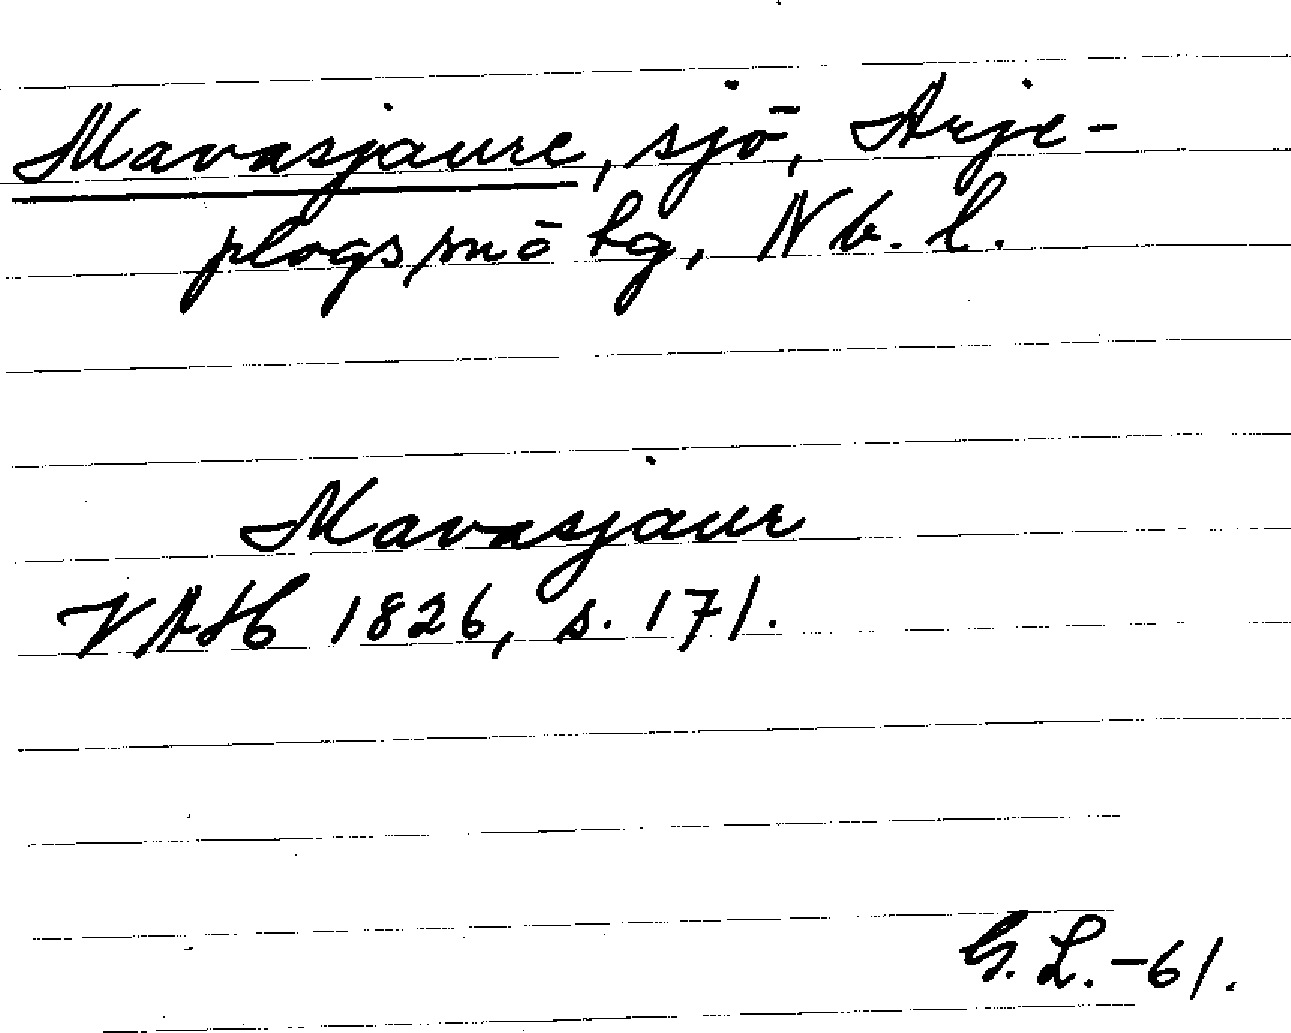 Mavasjaure, sjö, Arje-
plogs snö lg, Nb. l.
Mavasjaur
VAH 1826, s. 171.
G. L. -61.